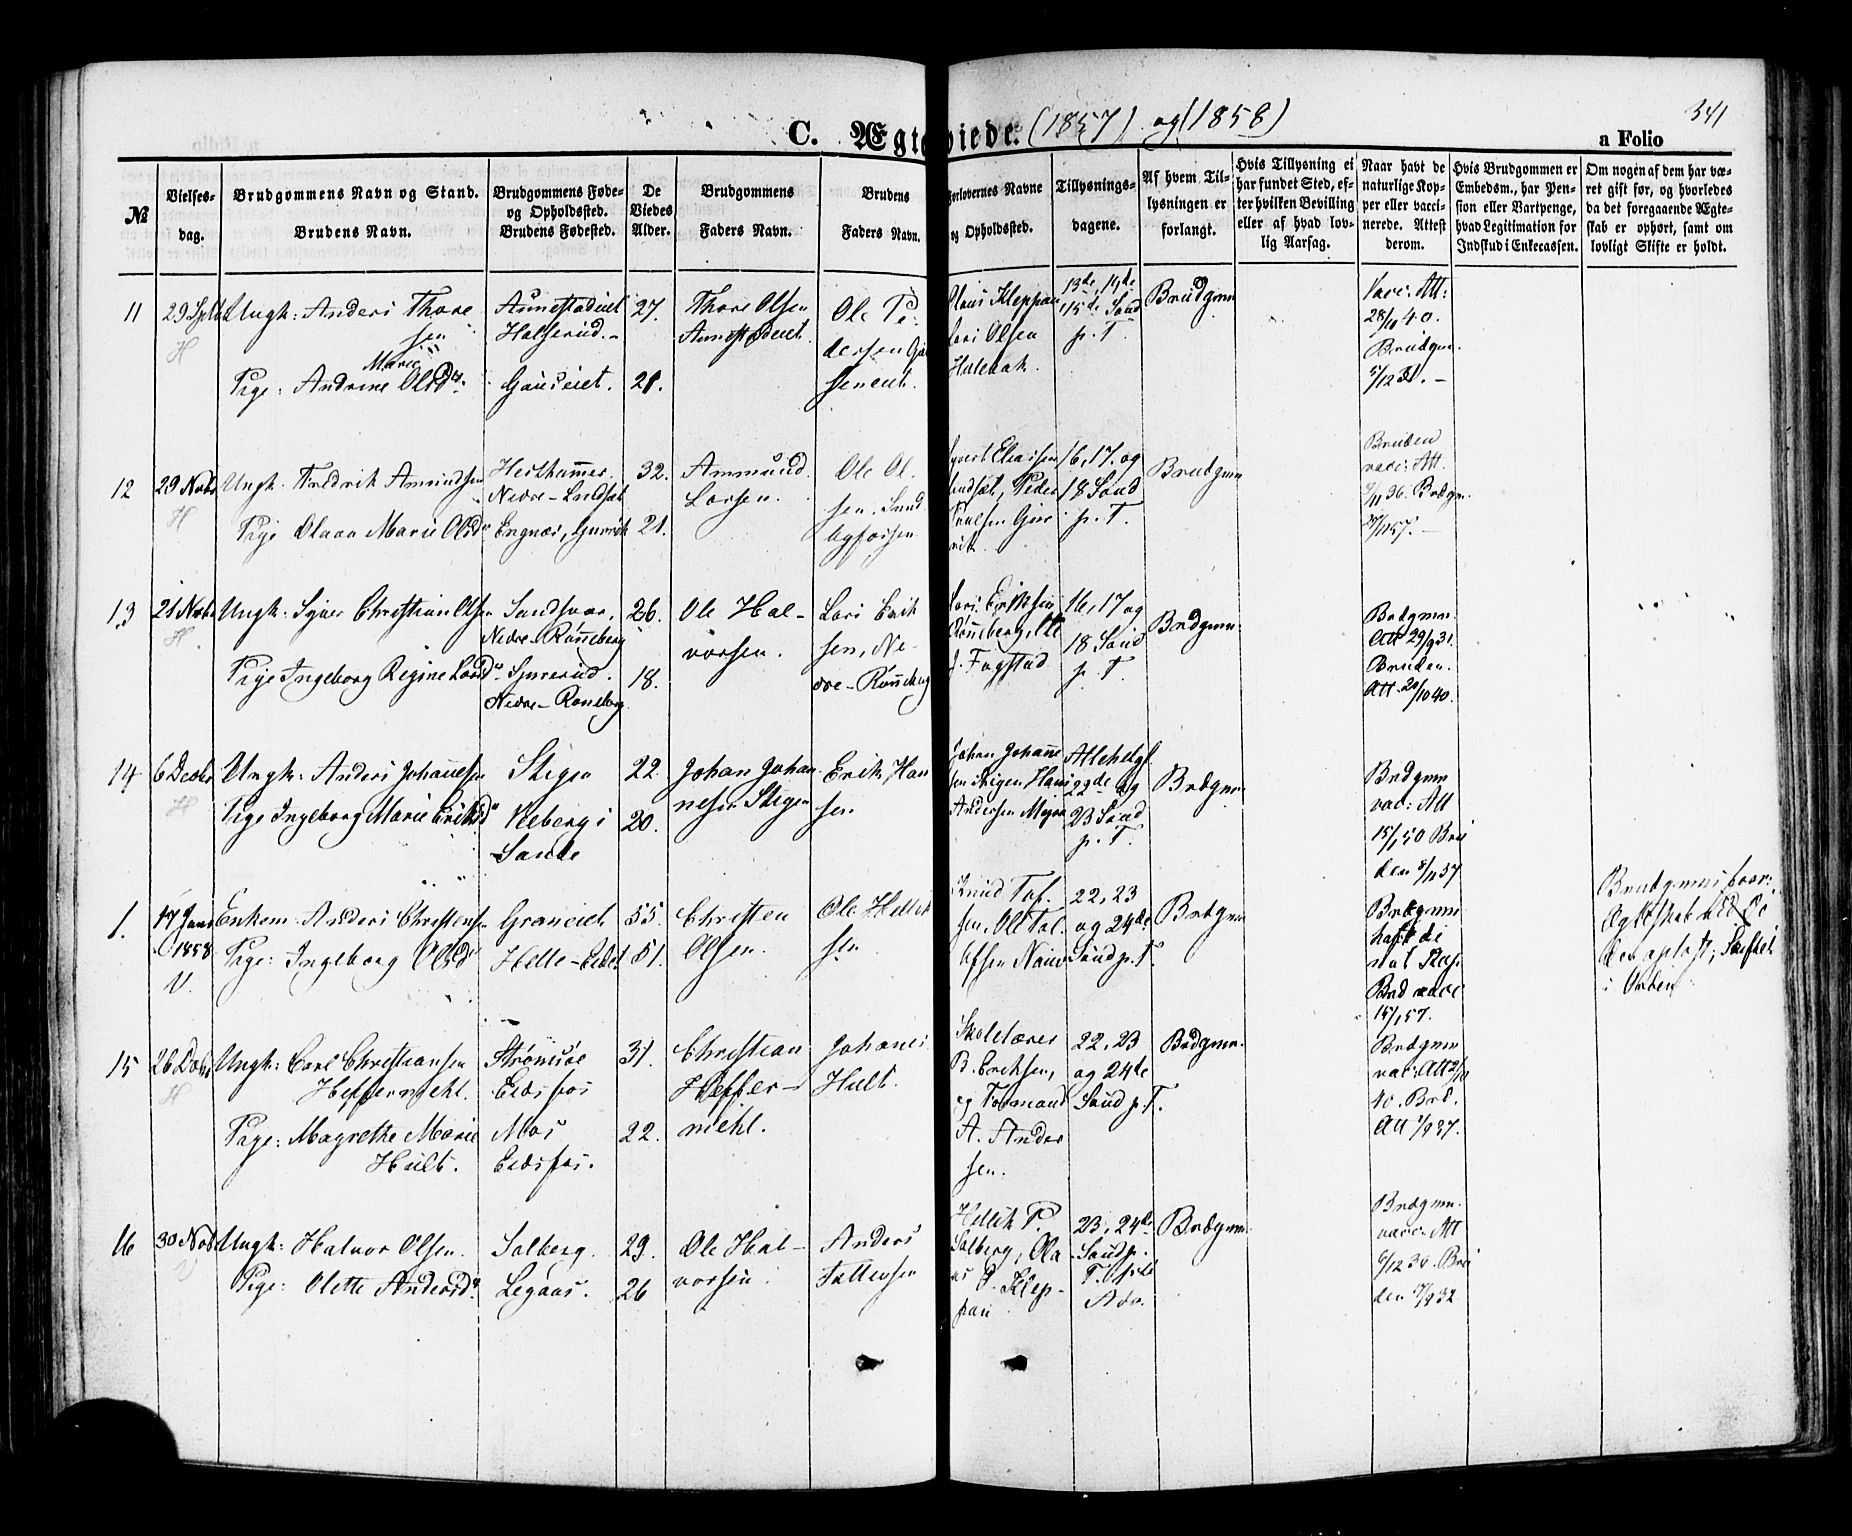 341
C. Ægteviede. (1857) og (1858)
a Folio
№
Vielses-
dag.
Brudgommens Navn og Stand.
Brudens Navn.
Brudgommens Føde-
og Opholdssted.
Brudens Fødested.
De
Viedes
Alder.
Brudgommens
Faders Navn.
Brudens
Faders Navn.
Forlovernes Navne
og Opholdssted.
Tillysnings-
dagene.
Af hvem Til-
lysningen er
forlangt.
Hvis Tillysning ei
har fundet Sted, ef-
ter hvilken Bevilling
eller af hvad lov-
lig Aarsag.
Naar havt de
naturlige Kop-
per eller vacci-
nerede. Attest
derom.
Hvis Brudgommen er
Embedsm., har Pen-
sion eller Vartpenge,
hvad Legitimation for
Indskud i Enkecassen.
Om nogen af dem har væ-
ret gift før, og hvorledes
da det foregaaende Ægte-
skab er ophørt, samt om
lovligt Skifte er holdt.
11
29 Sptbr
H
Ungk: Anders Thore
sen
Marie
Pige: Andrine Olsdr.
Halserud.
27.
21.
Thore Olsen
Ole Pe-
dersen
Olaus Kleppan
Lars Olsen
Holebak.
13de, 14de
15de Sønd
p. T.
Brudgmn
Vacc: Att:
28/11 40.
Brudgm.
5/12 31.
12
29 Novbr
H
Ungk. Fredrik Amundsen
Pige Olava Marie Olsdr
Nedre-
Engnæs, Gurvik
32.
21.
Ammund
Larsen.
Ole Ol.
sen.
Syvert Eliassen
Peder
16, 17. og
18 Sønd
p. T.
Brudgmn
Bruden
vacc: Att.
36. Brdgm.
13
21 Novbr
H
Ungk. Syver Christian Olsen
Pige Ingeborg Regine Larsdr
Sandsvær,
Nedre-Rønneberg
Nedre-Rønneberg
26.
18.
Ole Hal-
vorsen.
Lars Erik
sen, Ne-
dre-Rønneberg
Lars Eriksen
Rønneberg, Ole
Fagstad
16, 17 og
18 Sønd
p. T.
Brdgmn.
Brdgmn.
Att 29/9 31.
Bruden.
Att. 20/10 40.
14
6 Decbr
H
Ungk: Anders Johannesen
Pige Ingeborg Marie Eriksdr
Stigen
Veberg i
Sande
22
20.
Johan Johan
nesen Stigen
Erik Han
sen
Johan Johanne
sen Stigen Hans
Andersen
Allehelgf.
22de og
23 Sønd
p. T.
Brdgmn.
Brdgmn
vac: Att
15/1 50 Bru
den 5/11 37
1.
17 Janr
1858
V.
Enkem: Anders Christensen
Pige: Ingeborg Olsdr
Graneiet
Helle-Eiet
55.
51.
Christen
Olsen.
Ole Hellik
sen
Knud Tol.
sen, Ole Tol
lefsen
22, 23
og 24de
Sønd p. T.
Brdgmn
Brdgmn
haft de
nat. Kop.
Brd vacc
15/1 57.
Brudgmns foor:
Ægteskab ved Dø
den opløst; Skiftet
i Orden
15
26 Decbr
H
Ungk: Carl Christiansen
Heffermehl.
Pige: Magrethe Marie
Hult.
Strømsøe
Eidsfos
Mos
Eidsfos.
31.
22.
Christian
Heffer-
mehl.
Johannes
Hult.
Skolelærer
B. Eriksen,
og Formand
A. Ander
sen.
22, 23
og 24de
Sønd p. T.
Brdgmn.
Brdgmn
vac: Att 2/10
40. Brd.
Att 1/9 37.
16
30 Novb
V
Ungk: Halvor Olsen.
Pige: Olette Andersdr
Solberg.
Legaas.
29.
26
Ole Hal-
vorsen
Anders
Hellik P.
Solberg, Ola
us P. Klep-
pan
23, 24de
Sønd p.
T.
Adv.
Brdgmn
Brdgmn.
vacc: Att
6/12 30. Bru
den 17/9 32